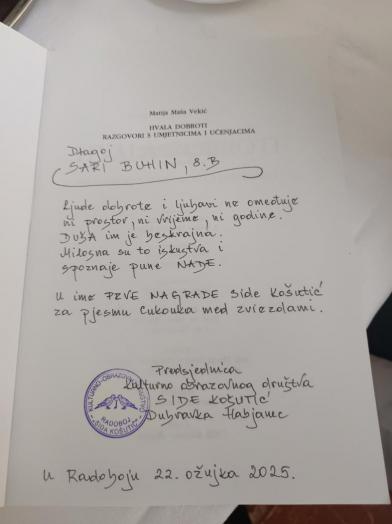 Matija Maša Vekić
HVALA DOBROTI
RAZGOVORI S UMJETNICIMA I UČENJACIMA
Dragoj
SARI BUHIN, 8.B
Ljude dobrote i ljubavi ne omeđuje
ni prostor, ni vrijeme, ni godine.
DUŠA im je beskrajna.
Milosna su to iskustva i
spoznaje pune NADE.
U ime PRVE NAGRADE Side Košutić
za pjesmu Cukouka med zviezdolami.
Predsjednica
Kulturno obrazovnog društva
SIDE KOŠUTIĆ
Dubravka Habjanec
KULTURNO-OBRAZOVNO DRUŠTVO
RADOBOJ
"SIDA KOŠUTIĆ"
U Radoboju 22. ožujka 2025.